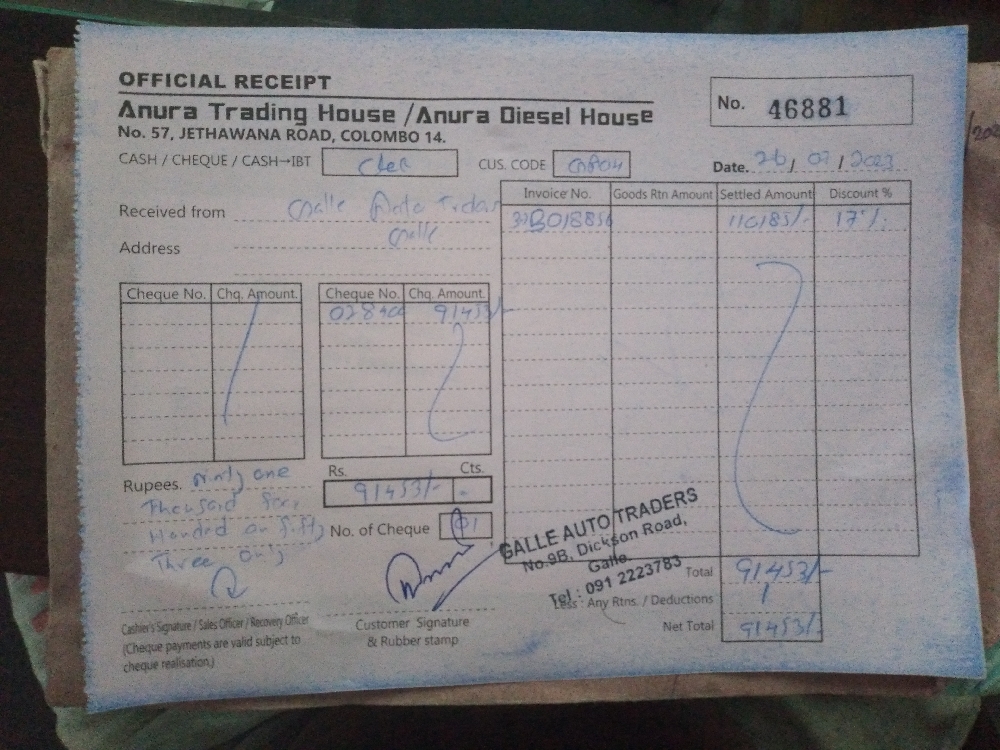 OFFICIAL RECEIPT
Anura Trading House /Anura Diesel House
No. 57, JETHAWANA ROAD, COLOMBO 14.
No. 46881
CASH / CHEQUE / CASH→IBT
CUS. CODE
Date. 26 / 07 / 2023
Received from Galle
Address Galle
Invoice No. Goods Rtn Amount Settled Amount Discount %
110185/- 17%
Cheque No. Chq. Amount. Cheque No. Chq. Amount.
91453/-
Rs. Cts.
91453/- -
Rupees. ninty one
Thousand
Handred on fifty
Three only
No. of Cheque 01
GALLE AUTO TRADERS
No.9B, Dickson Road,
Galle.
Tel : 091 2223783
Total 91453/-
Less : Any Rtns. / Deductions
Net Total 91453/-
Cashier's Signature / Sales Officer / Recovery Officer
(Cheque payments are valid subject to
cheque realisation.)
Customer Signature
& Rubber stamp